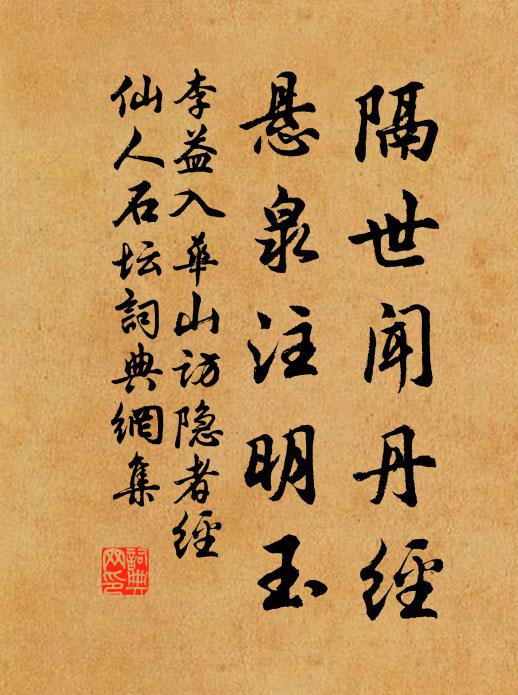 隔世闻丹經
悬泉注明玉
李益入華山访隐者經
仙人石坛詞典網集
詞典網印